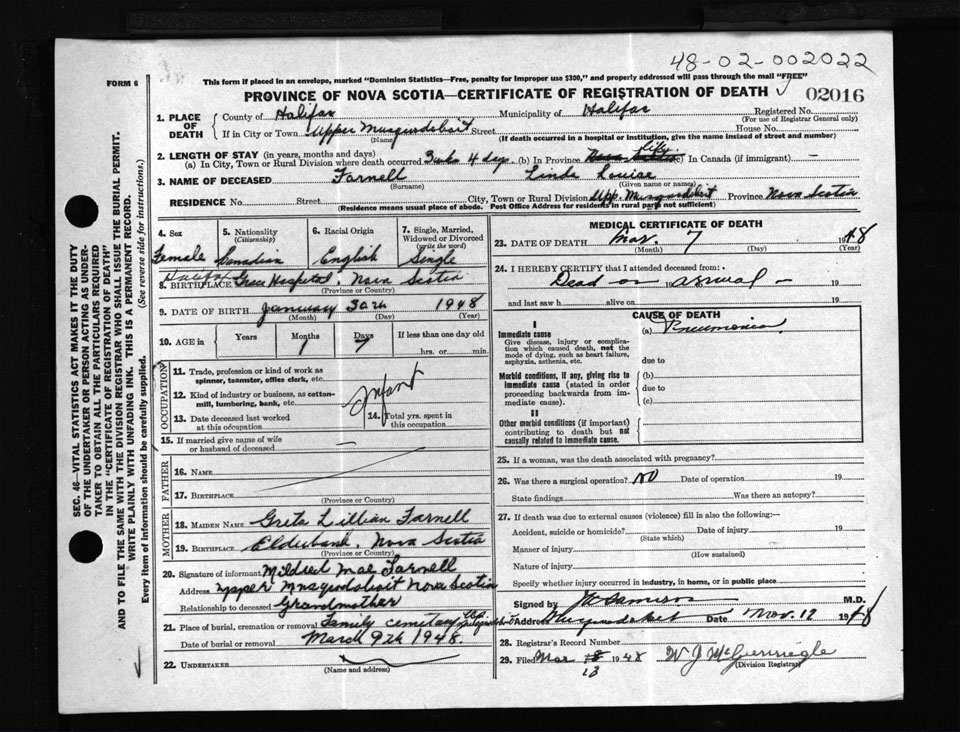 48-02-002022
FORM 6
This form if placed in an envelope, marked "Dominion Statistics—Free, penalty for improper use $300," and properly addressed will pass through the mail "FREE"
PROVINCE OF NOVA SCOTIA—CERTIFICATE OF REGISTRATION OF DEATH
02016
1. PLACE OF DEATH
County of Halifax Municipality of Halifax Registered No.
(For use of Registrar General only)
If in City or Town Upper Musquodoboit Street House No.
(Name) (If death occurred in a hospital or institution, give the name instead of street and number)
2. LENGTH OF STAY (in years, months and days)
(a) In City, Town or Rural Division where death occurred 3 wks 4 days. (b) In Province Life (c) In Canada (if immigrant) —
3. NAME OF DECEASED Farnell Linda Louise
(Surname) (Given name or names)
RESIDENCE No. Street City, Town or Rural Division Upp. Musquodoboit Province Nova Scotia
(Residence means usual place of abode. Post Office Address for residents in rural parts not sufficient)
4. Sex
Female
5. Nationality
(Citizenship)
Canadian
6. Racial Origin
English
7. Single, Married, Widowed or Divorced
(write the word)
Single
8. BIRTHPLACE Halifax Grace Hospital, Nova Scotia
(Province or Country)
9. DATE OF BIRTH January 30th 1948
(Month) (Day) (Year)
10. AGE in Years Months Days If less than one day old
1 7 hrs. or min.
OCCUPATION
11. Trade, profession or kind of work as
spinner, teamster, office clerk, etc.
12. Kind of industry or business, as cotton-
mill, lumbering, bank, etc.
Infant
13. Date deceased last worked
at this occupation
14. Total yrs. spent in
this occupation
15. If married give name of wife
or husband of deceased —
FATHER
16. NAME
17. BIRTHPLACE
(Province or Country)
MOTHER
18. MAIDEN NAME Greta Lillian Farnell
19. BIRTHPLACE Elderbank, Nova Scotia
(Province or Country)
20. Signature of informant Mildred Mae Farnell
Address Upper Musquodoboit Nova Scotia
Relationship to deceased Grandmother
21. Place of burial, cremation or removal Family cemetary
Date of burial or removal March 9th 1948.
22. UNDERTAKER
(Name and Address)
MEDICAL CERTIFICATE OF DEATH
23. DATE OF DEATH Mar. 7 1948
(Month) (Day) (Year)
24. I HEREBY CERTIFY that I attended deceased from:
Dead on 19 arrival — 19
and last saw h alive on 19
CAUSE OF DEATH
I
Immediate cause (a) Pneumonia
Give disease, injury or complica-
tion which caused death, not the
mode of dying, such as heart failure,
asphyxia, asthenia, etc.
due to
Morbid conditions, if any, giving rise to
immediate cause (stated in order
proceeding backwards from im-
mediate cause).
(b)
due to
(c)
II
Other morbid conditions (if important)
contributing to death but not
causally related to immediate cause.
25. If a woman, was the death associated with pregnancy?
26. Was there a surgical operation? No Date of operation 19
State findings Was there an autopsy?
27. If death was due to external causes (violence) fill in also the following:—
Accident, suicide or homicide? Date of injury 19
(State which)
Manner of injury
(How sustained)
Nature of injury
Specify whether injury occurred in industry, in home, or in public place
Signed by M.D.
Address Date Mar. 12 1948
28. Registrar's Record Number
29. Filed Mar 13 1948
(Division Registrar)
SEC. 46—VITAL STATISTICS ACT MAKES IT THE DUTY
OF THE UNDERTAKER OR PERSON ACTING AS UNDER-
TAKER TO OBTAIN ALL THE PARTICULARS REQUIRED
IN THE "CERTIFICATE OF REGISTRATION OF DEATH"
AND TO FILE THE SAME WITH THE DIVISION REGISTRAR WHO SHALL ISSUE THE BURIAL PERMIT.
WRITE PLAINLY WITH UNFADING INK. THIS IS A PERMANENT RECORD.
Every item of information should be carefully supplied. (See reverse side for instructions.)